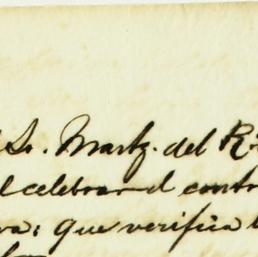 Sr. Martz. del R
el celebrar el contr
va; que verifica